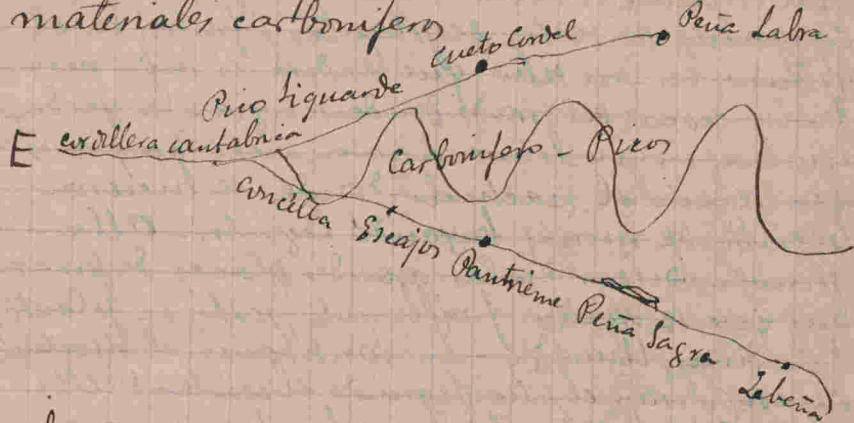 materiales carboniferos
Cueto Cordel
Peña Labra
Pico Liguarde
E cordillera cantabrica
Carbonifero - Picos
Concilla
Escajos
Pantrieme
Peña Sagra
Lebeña